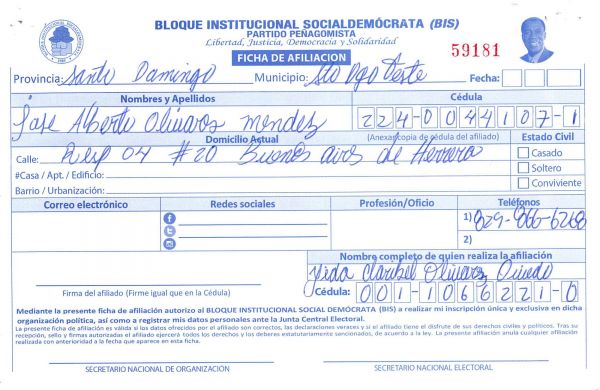 BLOQUE INSTITUCIONAL SOCIALDEMÓCRATA (BIS)
PARTIDO PEÑAGOMISTA
Libertad, Justicia, Democracia y Solidaridad
FICHA DE AFILIACION
59181
Provincia: Santo Domingo Municipio: Sto Dgo Oeste Fecha:
Nombres y Apellidos Cédula
Jose Alberto Olivares Mendez 224-0044107-1
Domicilio Actual (Anexar copia de cédula del afiliado) Estado Civil
Calle: Resp 04 #20 Buenos aires de Herrera Casado
#Casa / Apt. / Edificio: Soltero
Barrio / Urbanización: Conviviente
Correo electrónico Redes sociales Profesión/Oficio Teléfonos
1) 829-866-6268
2)
Nombre completo de quien realiza la afiliación
Claribel Olivares Oviedo
Firma del afiliado (Firme igual que en la Cédula) Cédula: 001-1066221-0
Mediante la presente ficha de afiliación autorizo al BLOQUE INSTITUCIONAL SOCIAL DEMÓCRATA (BIS) a realizar mi inscripción única y exclusiva en dicha
organización política, así como a registrar mis datos personales ante la Junta Central Electoral.
La presente ficha de afiliación es válida si las datos ofrecidos por el afiliado son correctos, las declaraciones veraces y si el afiliado tiene el disfrute de sus derechos civiles y políticos. Tras su
recepción, sello y firmas autorizadas el afiliado ejercerá todos los derechos y los deberes estatutariamente sancionados, de acuerdo a la ley. La presente afiliación anula cualquier afiliación
realizada con anterioridad a la fecha que aparece en esta ficha.
SECRETARIO NACIONAL DE ORGANIZACIÓN SECRETARIO NACIONAL ELECTORAL